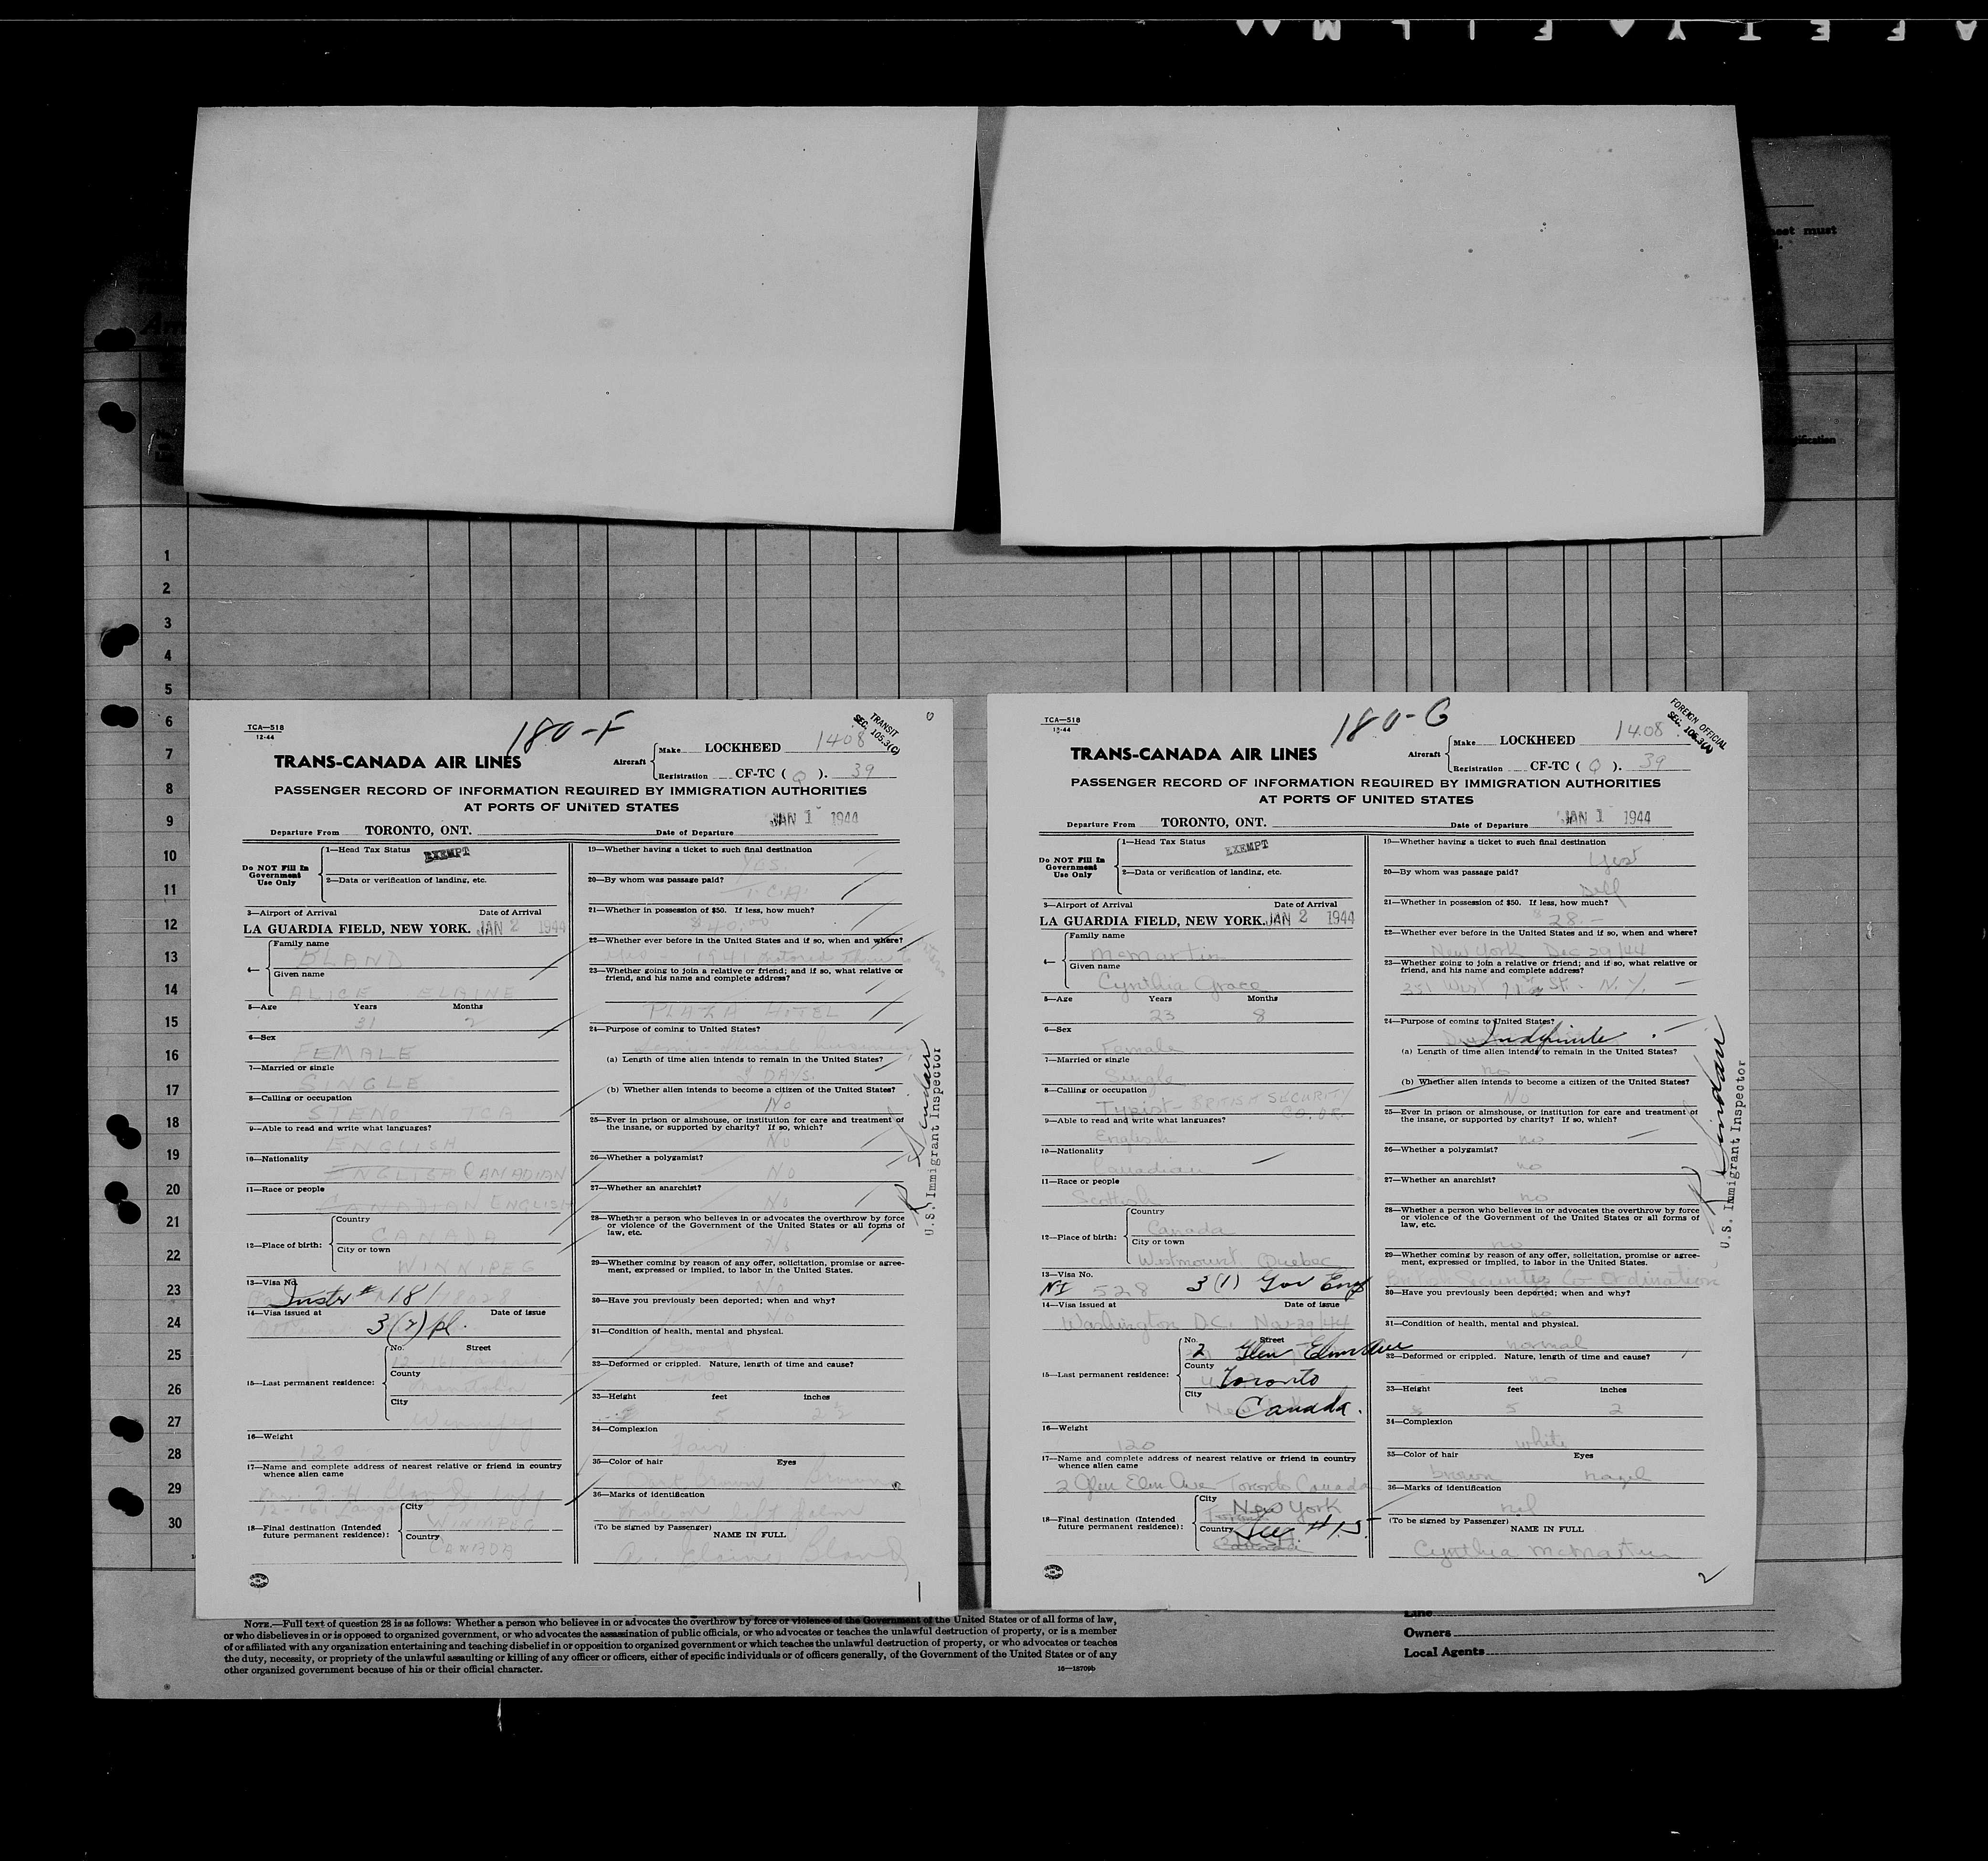 SAFETY FILM
1
2
3
4
5
6
7
8
9
10
11
12
13
14
15
16
17
18
19
20
21
22
23
24
25
26
27
28
29
30
TCA—518
12-44
180-F
TRANSIT
SEC. 105.3(C)
TRANS-CANADA AIR LINES
Aircraft
Make LOCKHEED 1408
Registration CF-TC ( Q ). 39
PASSENGER RECORD OF INFORMATION REQUIRED BY IMMIGRATION AUTHORITIES
AT PORTS OF UNITED STATES
Departure From TORONTO, ONT. Date of Departure JAN 1 1944
Do NOT Fill In
Government
Use Only
1—Head Tax Status EXEMPT
2—Data or verification of landing, etc.
3—Airport of Arrival Date of Arrival
LA GUARDIA FIELD, NEW YORK. JAN 2 1944
4—
Family name
BLAND
Given name
ALICE ELAINE
5—Age Years Months
31 2
6—Sex
FEMALE
7—Married or single
SINGLE
8—Calling or occupation
STENO TCA
9—Able to read and write what languages?
ENGLISH
10—Nationality
ENGLISH CANADIAN
11—Race or people
CANADIAN ENGLISH
12—Place of birth:
Country
CANADA
City or town
WINNIPEG
13—Visa No.
Instr # 18
14—Visa issued at Date of issue
3(2) pl.
15—Last permanent residence:
No. Street
County
Manitoba
City
Winnipeg
16—Weight
120
17—Name and complete address of nearest relative or friend in country
whence alien came
18—Final destination (Intended
future permanent residence):
City
WINNIPEG
Country
CANADA
19—Whether having a ticket to such final destination
YES
20—By whom was passage paid?
T.C.A.
21—Whether in possession of $50. If less, how much?
$40.00
22—Whether ever before in the United States and if so, when and where?
1941
23—Whether going to join a relative or friend; and if so, what relative or
friend, and his name and complete address?
PLAZA HOTEL
24—Purpose of coming to United States?
(a) Length of time alien intends to remain in the United States?
DAYS.
(b) Whether alien intends to become a citizen of the United States?
No
25—Ever in prison or almshouse, or institution for care and treatment of
the insane, or supported by charity? If so, which?
No
26—Whether a polygamist?
No
27—Whether an anarchist?
No
28—Whether a person who believes in or advocates the overthrow by force
or violence of the Government of the United States or all forms of
law, etc.
No
29—Whether coming by reason of any offer, solicitation, promise or agree-
ment, expressed or implied, to labor in the United States.
No
30—Have you previously been deported; when and why?
No
31—Condition of health, mental and physical.
32—Deformed or crippled. Nature, length of time and cause?
No
33—Height feet inches
5 2½
34—Complexion
Fair
35—Color of hair Eyes
Dark Brown Brown
36—Marks of identification
(To be signed by Passenger)
NAME IN FULL
A. Elaine Bland
U.S. Immigrant Inspector
1
TCA—518
12-44
180-G
FOREIGN OFFICIAL
SEC. 105.3(A)
TRANS-CANADA AIR LINES
Aircraft
Make LOCKHEED 1408
Registration CF-TC ( Q ). 39
PASSENGER RECORD OF INFORMATION REQUIRED BY IMMIGRATION AUTHORITIES
AT PORTS OF UNITED STATES
Departure From TORONTO, ONT. Date of Departure JAN 1 1944
Do NOT Fill In
Government
Use Only
1—Head Tax Status EXEMPT
2—Data or verification of landing, etc.
3—Airport of Arrival Date of Arrival
LA GUARDIA FIELD, NEW YORK. JAN 2 1944
4—
Family name
McMartin
Given name
Cynthia Grace
5—Age Years Months
23 8
6—Sex
Female
7—Married or single
Single
8—Calling or occupation
Typist - BRITISH SECURITY
CO. OR.
9—Able to read and write what languages?
English
10—Nationality
Canadian
11—Race or people
Scottish
12—Place of birth:
Country
Canada
City or town
Westmount, Quebec
13—Visa No.
NI 528 3(1) Gov Emp
14—Visa issued at Date of issue
Washington D.C. Nov 29/44
15—Last permanent residence:
No. Street
2 Glen Elm Ave
County
Toronto
City
Canada.
16—Weight
120
17—Name and complete address of nearest relative or friend in country
whence alien came
2 Glen Elm Ave Toronto Canada
18—Final destination (Intended
future permanent residence):
City
New York
Country
Canada
19—Whether having a ticket to such final destination
Yes
20—By whom was passage paid?
Self
21—Whether in possession of $50. If less, how much?
$28.-
22—Whether ever before in the United States and if so, when and where?
New York Dec 29/44
23—Whether going to join a relative or friend; and if so, what relative or
friend, and his name and complete address?
351 West 71st St. N.Y.
24—Purpose of coming to United States?
Indefinite
(a) Length of time alien intends to remain in the United States?
no
(b) Whether alien intends to become a citizen of the United States?
No
25—Ever in prison or almshouse, or institution for care and treatment of
the insane, or supported by charity? If so, which?
no
26—Whether a polygamist?
no
27—Whether an anarchist?
no
28—Whether a person who believes in or advocates the overthrow by force
or violence of the Government of the United States or all forms of
law, etc.
no
29—Whether coming by reason of any offer, solicitation, promise or agree-
ment, expressed or implied, to labor in the United States.
British Security Co-Ordination
30—Have you previously been deported; when and why?
no
31—Condition of health, mental and physical.
normal
32—Deformed or crippled. Nature, length of time and cause?
no
33—Height feet inches
5 2
34—Complexion
white
35—Color of hair Eyes
brown hazel
36—Marks of identification
nil
(To be signed by Passenger)
NAME IN FULL
Cynthia McMartin
U.S. Immigrant Inspector
2
NOTE.—Full text of question 28 is as follows: Whether a person who believes in or advocates the overthrow by force or violence of the Government of the United States or of all forms of law,
or who disbelieves in or is opposed to organized government, or who advocates the assassination of public officials, or who advocates or teaches the unlawful destruction of property, or is a member
of or affiliated with any organization entertaining and teaching disbelief in or opposition to organized government or which teaches the unlawful destruction of property, or who advocates or teaches
the duty, necessity, or propriety of the unlawful assaulting or killing of any officer or officers, either of specific individuals or of officers generally, of the Government of the United States or of any
other organized government because of his or their official character.
16—18709b
Line
Owners
Local Agents